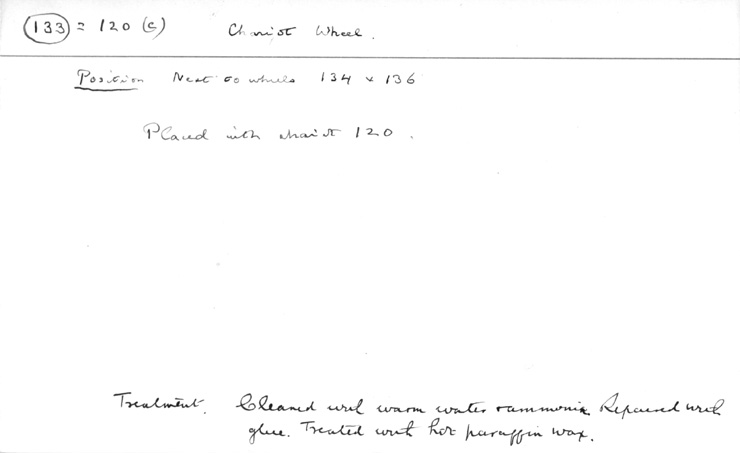 133 = 120 (c) Chariot Wheel.
Position Next to wheels 134 & 136
Placed with chariot 120.
Treatment. Cleaned with warm water & ammonia. Repaired with
glue. Treated with hot paraffin wax.